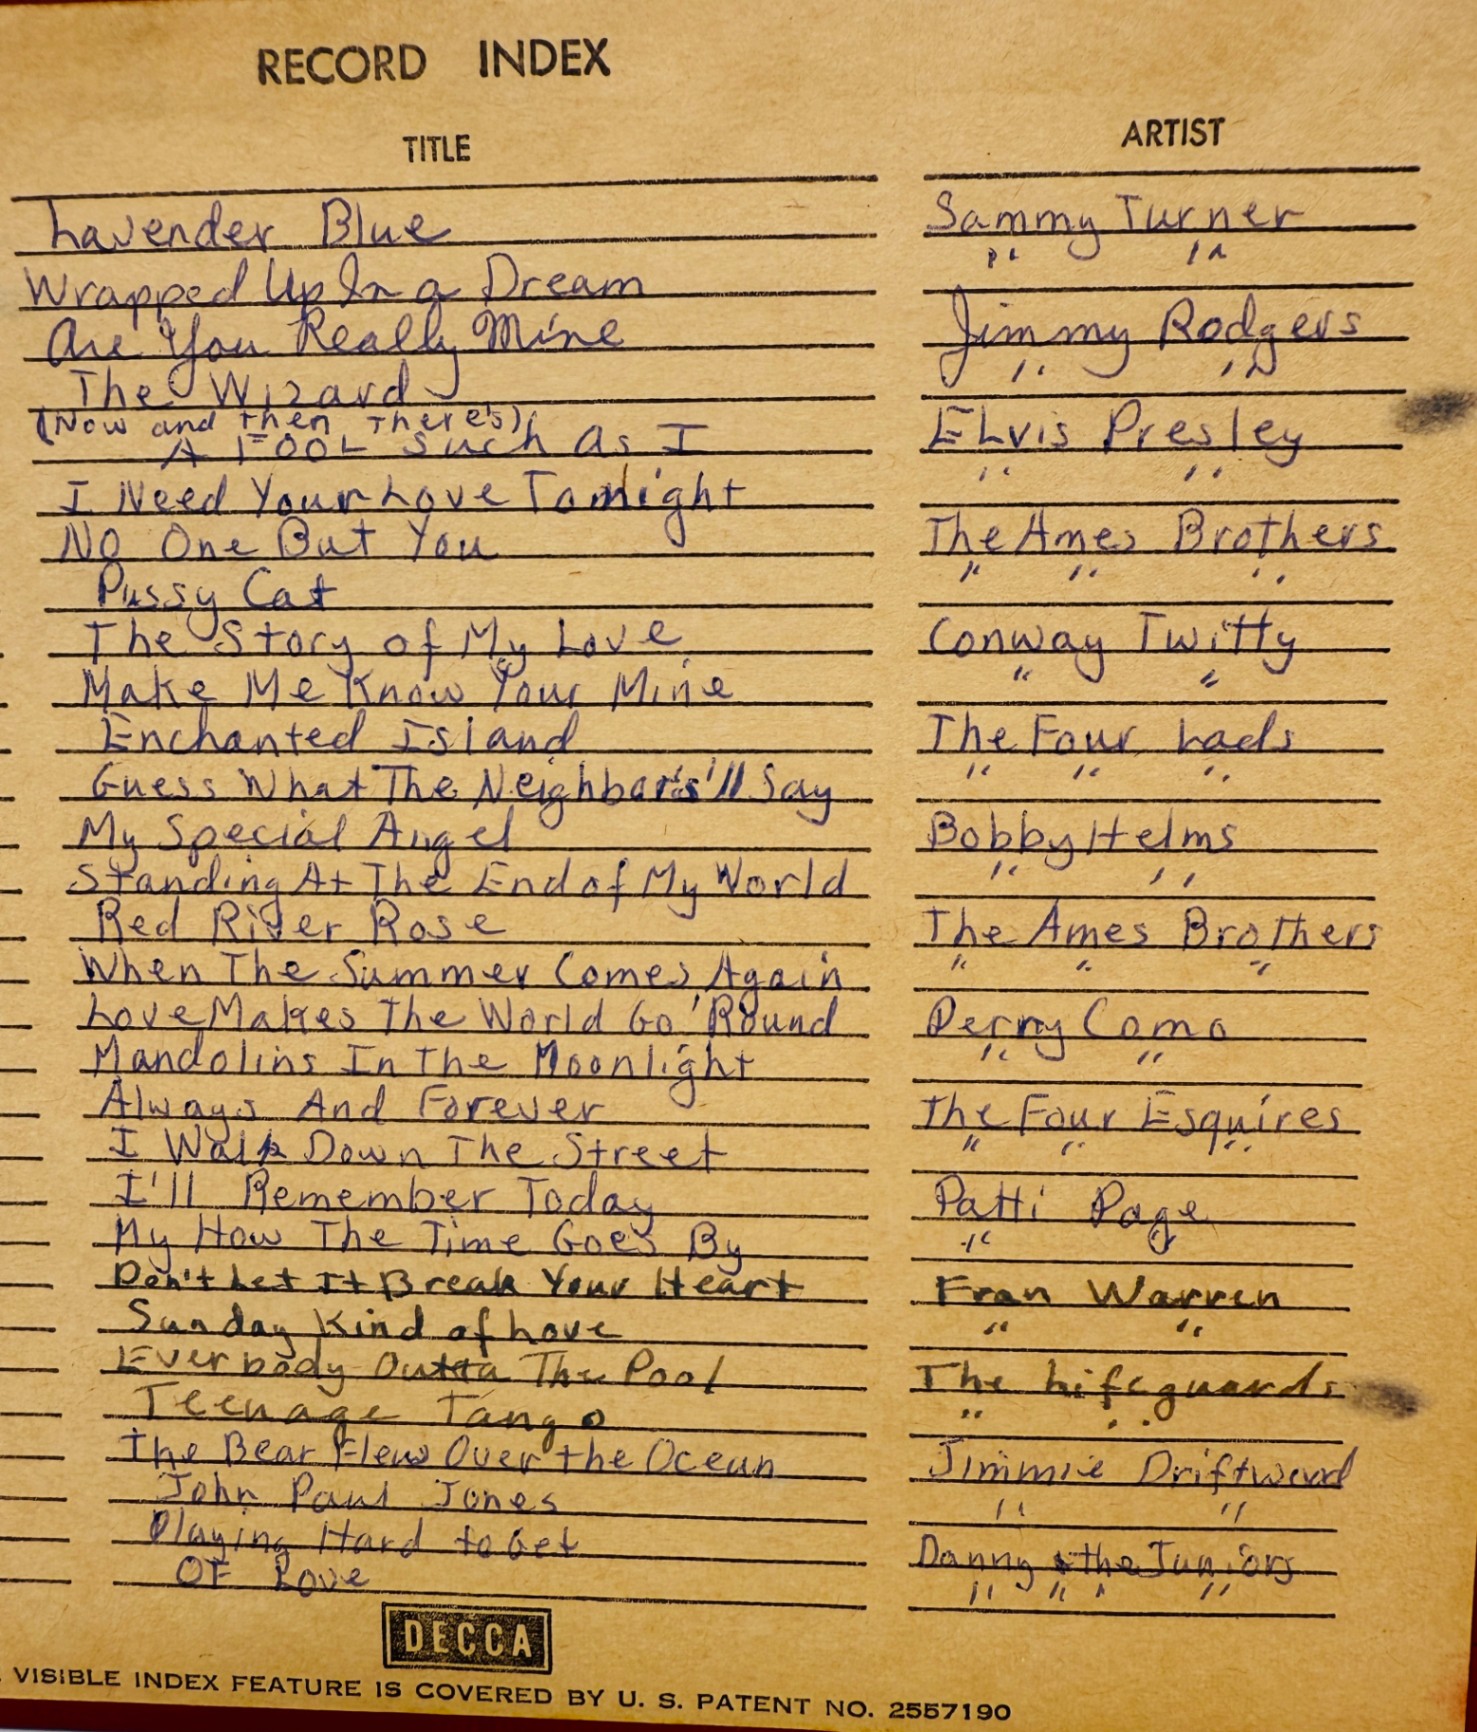 RECORD INDEX
TITLE ARTIST
Lavender Blue Sammy Turner
Wrapped Up In a Dream " "
Are You Really Mine Jimmy Rodgers
The Wizard " "
(Now and then There's)
A FOOL Such As I ELvis Presley
I Need Your Love Tonight " "
No One But You The Ames Brothers
Pussy Cat " " "
The Story of My Love Conway Twitty
Make Me Know Your Mine " "
Enchanted Island The Four Lads
Guess What The Neighbors'll Say " " "
My Special Angel Bobby Helms
Standing At The End of My World " "
Red River Rose The Ames Brothers
When The Summer Comes Again " " "
Love Makes The World Go 'Round Perry Como
Mandolins In The Moonlight " "
Always And Forever The Four Esquires
I Walk Down The Street " " "
I'll Remember Today Patti Page
My How The Time Goes By " "
Don't Let It Break Your Heart Fran Warren
Sunday Kind of Love " "
Everbody Outta The Pool The Lifeguards
Teenage Tango " "
The Bear Flew Over the Ocean Jimmie Driftwood
John Paul Jones " "
Playing Hard to Get Danny & the Juniors
OF Love " " " "
DECCA
VISIBLE INDEX FEATURE IS COVERED BY U. S. PATENT NO. 2557190